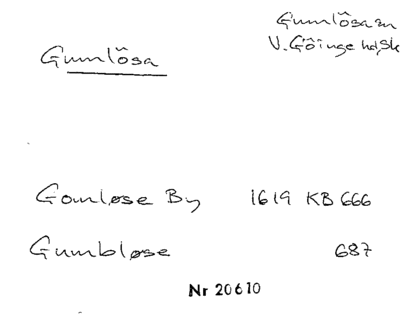 Gumlösa
Gumlösa sn
V. Göinge hd, Sk
Gomløse By 1619 KB 666
Gumbløse 687
Nr 20610